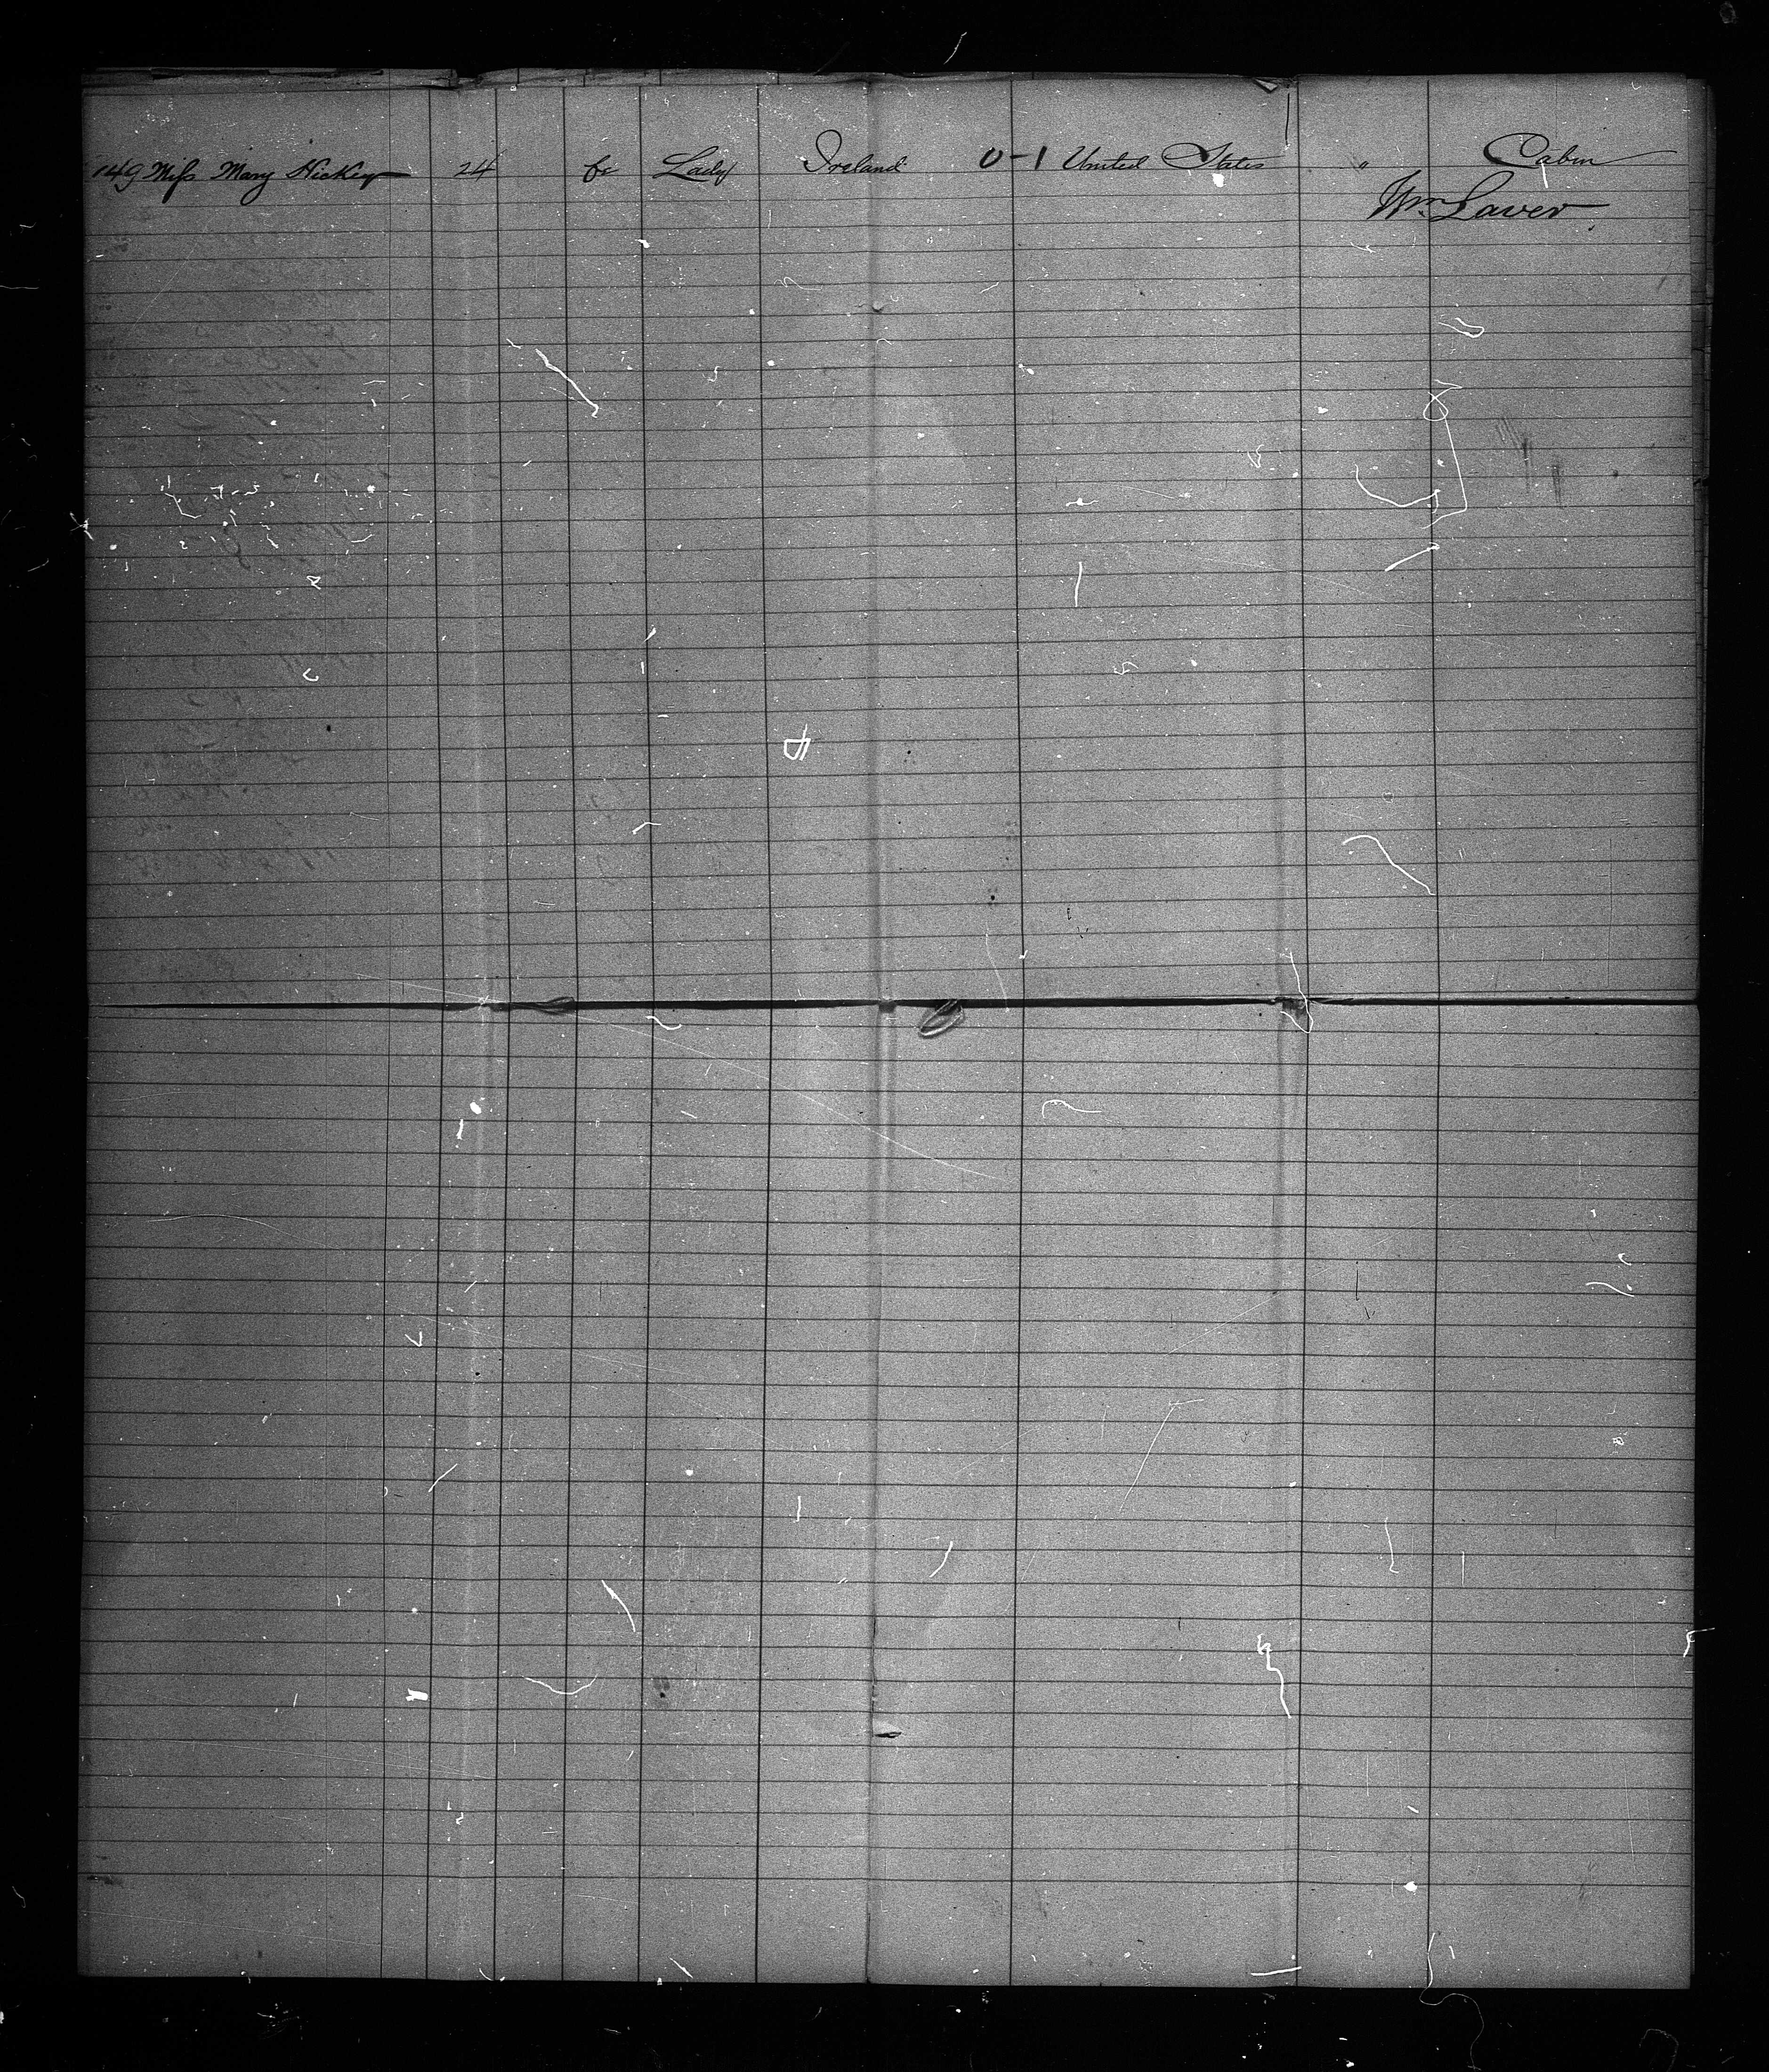 149 Miss Mary Hickey 24 fe Lady Ireland 0-1 United States " Cabin
Wm. Laver